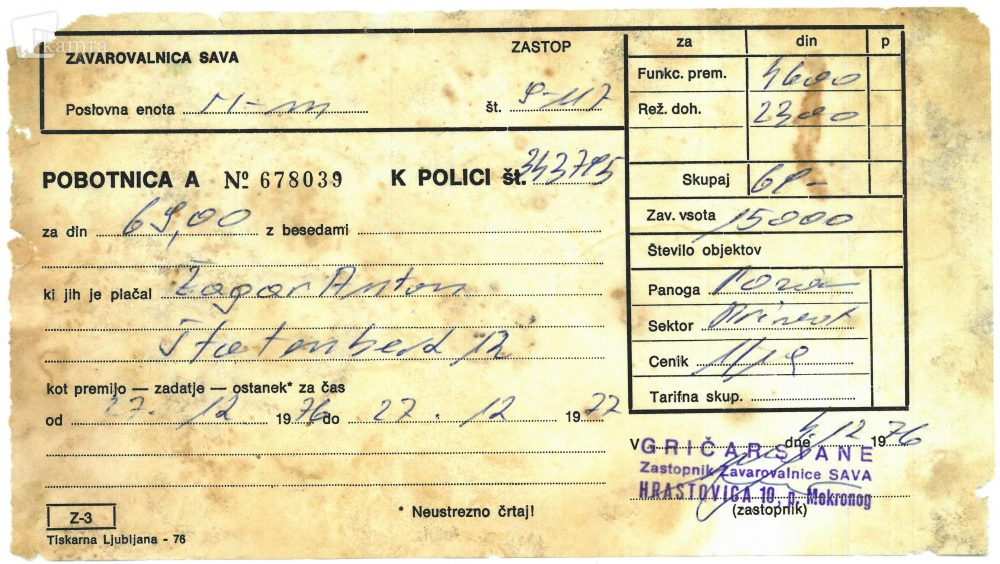 kamra
ZAVAROVALNICA SAVA
ZASTOP
Poslovna enota
št. 9-117
POBOTNICA A № 678039 K POLICI št. 343795
za din 69,00 z besedami
ki jih je plačal Žagar Anton
Štatenberk 12
kot premijo — zadatje — ostanek* za čas
od 27. 12 1976 do 27. 12 1977
Z-3
* Neustrezno črtaj!
Tiskarna Ljubljana - 76
za din p
Funkc. prem. 4600
Rež. doh. 2300
Skupaj 69-
Zav. vsota 15000
Število objektov
Panoga
Sektor
Cenik
Tarifna skup.
V dne 12 1976
GRIČAR STANE
Zastopnik Zavarovalnice SAVA
HRASTOVICA 10, p. Mokronog
(zastopnik)